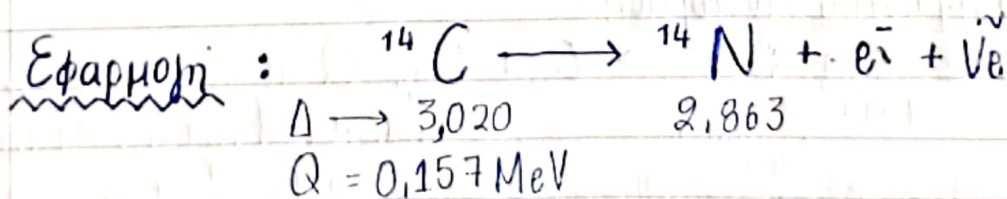 Εφαρμογή : ¹⁴C ⟶ ¹⁴N + e⁻ + ν̃e
Δ ⟶ 3,020 2.863
Q = 0,157 MeV